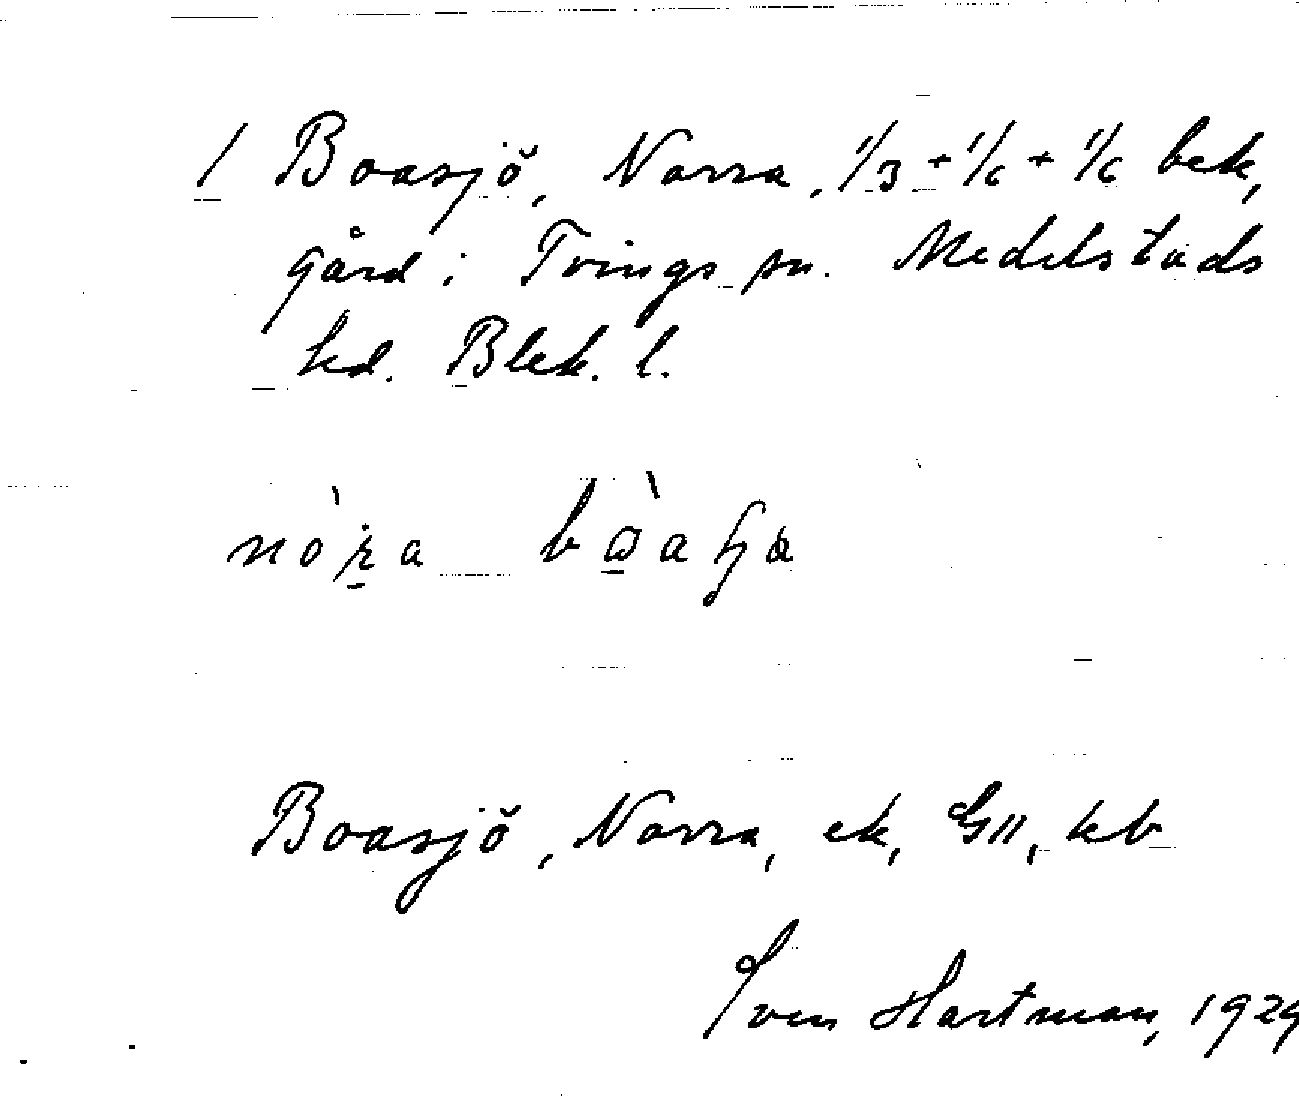 1 Boasjö, Norra, 1/3 + 1/6 + 1/6 bek,
gård i Tvings sn. Medelstads
hd. Blek. l.
Boasjö, Norra, ek, GII, kb
Sven Hartman, 1929